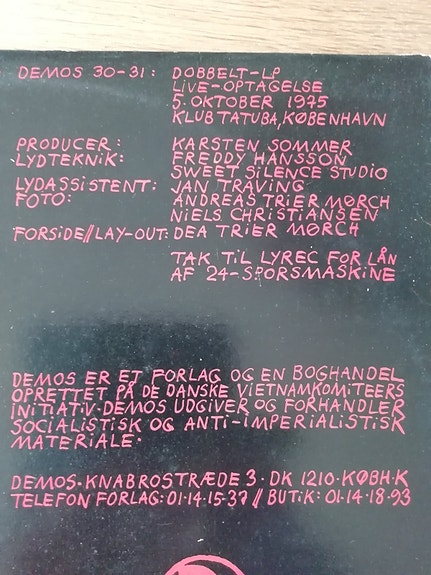 DEMOS 30-31: DOBBELT-LP
LIVE-OPTAGELSE
5. OKTOBER 1975
KLUB TATUBA, KØBENHAVN
PRODUCER: KARSTEN SOMMER
LYDTEKNIK: FREDDY HANSSON
SWEET SILENCE STUDIO
LYDASSISTENT: JAN TRAVING
FOTO: ANDREAS TRIER MØRCH
NIELS CHRISTIANSEN
FORSIDE//LAY-OUT: DEA TRIER MØRCH
TAK TIL LYREC FOR LÅN
AF 24-SPORSMASKINE
DEMOS ER ET FORLAG OG EN BOGHANDEL
OPRETTET PÅ DE DANSKE VIETNAMKOMITEERS
INITIATIV. DEMOS UDGIVER OG FORHANDLER
SOCIALISTISK OG ANTI-IMPERIALISTISK
MATERIALE.
DEMOS. KNABROSTRÆDE 3. DK 1210. KØBH. K
TELEFON FORLAG: 01.14.15.37 // BUTIK: 01.14.18.93